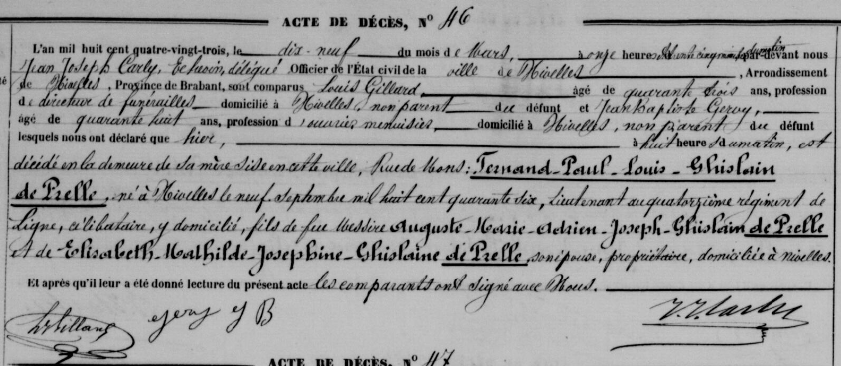 ACTE DE DÉCÈS, N° 46
L'an mil huit cent quatre-vingt-trois, le dix-neuf du mois de Mars, à onze heures du matin par-devant nous
Jean Joseph Carly, Echevin, délégué Officier de l'État civil de la ville de Nivelles, Arrondissement
de Nivelles, Province de Brabant, sont comparus Louis Gillard, âgé de quarante trois ans, profession
de directeur de funérailles domicilié à Nivelles, non parent du défunt et Jean Baptiste Geroy,
âgé de quarante huit ans, profession d'ouvrier menuisier domicilié à Nivelles, non parent du défunt
lesquels nous ont déclaré que hier, à huit heures du matin, est
décédé en la demeure de sa mère sise en cette ville, Rue de Mons: Fernand-Paul-Louis-Ghislain
de Prelle, né à Nivelles le neuf Septembre mil huit cent quarante six, Lieutenant au quatorzième régiment de
Ligne, célibataire, y domicilié, fils de feu Messire Auguste-Marie-Adrien-Joseph-Ghislain de Prelle
et de Elisabeth-Mathilde-Josephine-Ghislaine de Prelle, son épouse, propriétaire, domiciliée à nivelles.
Et après qu'il leur a été donné lecture du présent acte les comparants ont signé avec Nous.
L. Gillard geroy J B J. J. Carly
ACTE DE DÉCÈS, N° 47